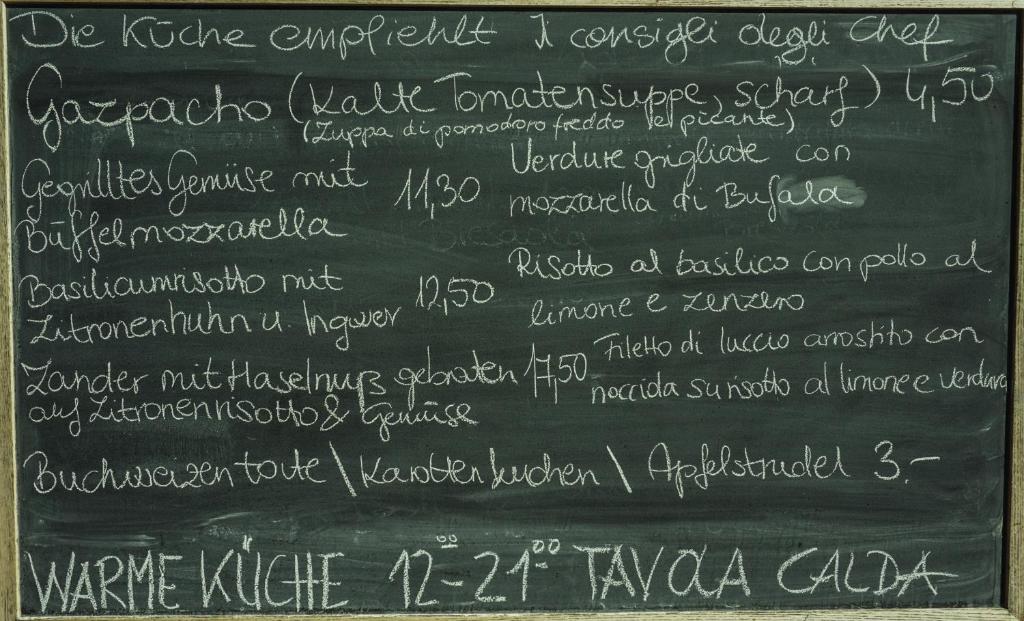 Die Küche empfiehlt I consigli degli Chef
Gazpacho (Kalte Tomatensuppe, scharf) 4,50
(Zuppa di pomodoro freddo e picante)
Gegrilltes Gemüse mit 11,30 Verdure grigliate con
Büffelmozzarella mozzarella di Bufala
Basilicumrisotto mit 12,50 Risotto al basilico con pollo al
Zitronenhuhn u. Ingwer limone e zenzero
Zander mit Haselnuß gebraten 17,50 Filetto di luccio arrostito con
auf Zitronenrisotto & Gemüse nocciola su risotto al limone e verdura
Buchweizentorte \ Karottenkuchen \ Apfelstrudel 3.-
WARME KÜCHE 12⁰⁰-21⁰⁰ TAVOLA CALDA